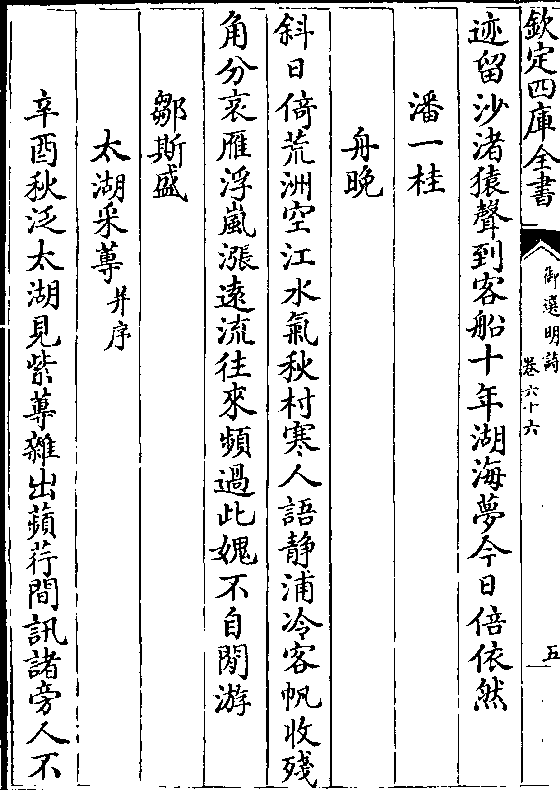 欽定四庫全書
御選明詩
卷六十六
五
迹留沙渚猿聲到客船十年湖海夢今日倍依然
潘一桂
舟晚
斜日倚荒洲空江水氣秋村寒人語静浦冷客帆收殘
角分哀雁浮嵐漲遠流往來頻過此媿不自閒游
鄒斯盛
太湖采蓴并序
辛酉秋泛太湖見紫蓴雜出蘋荇間訊諸旁人不